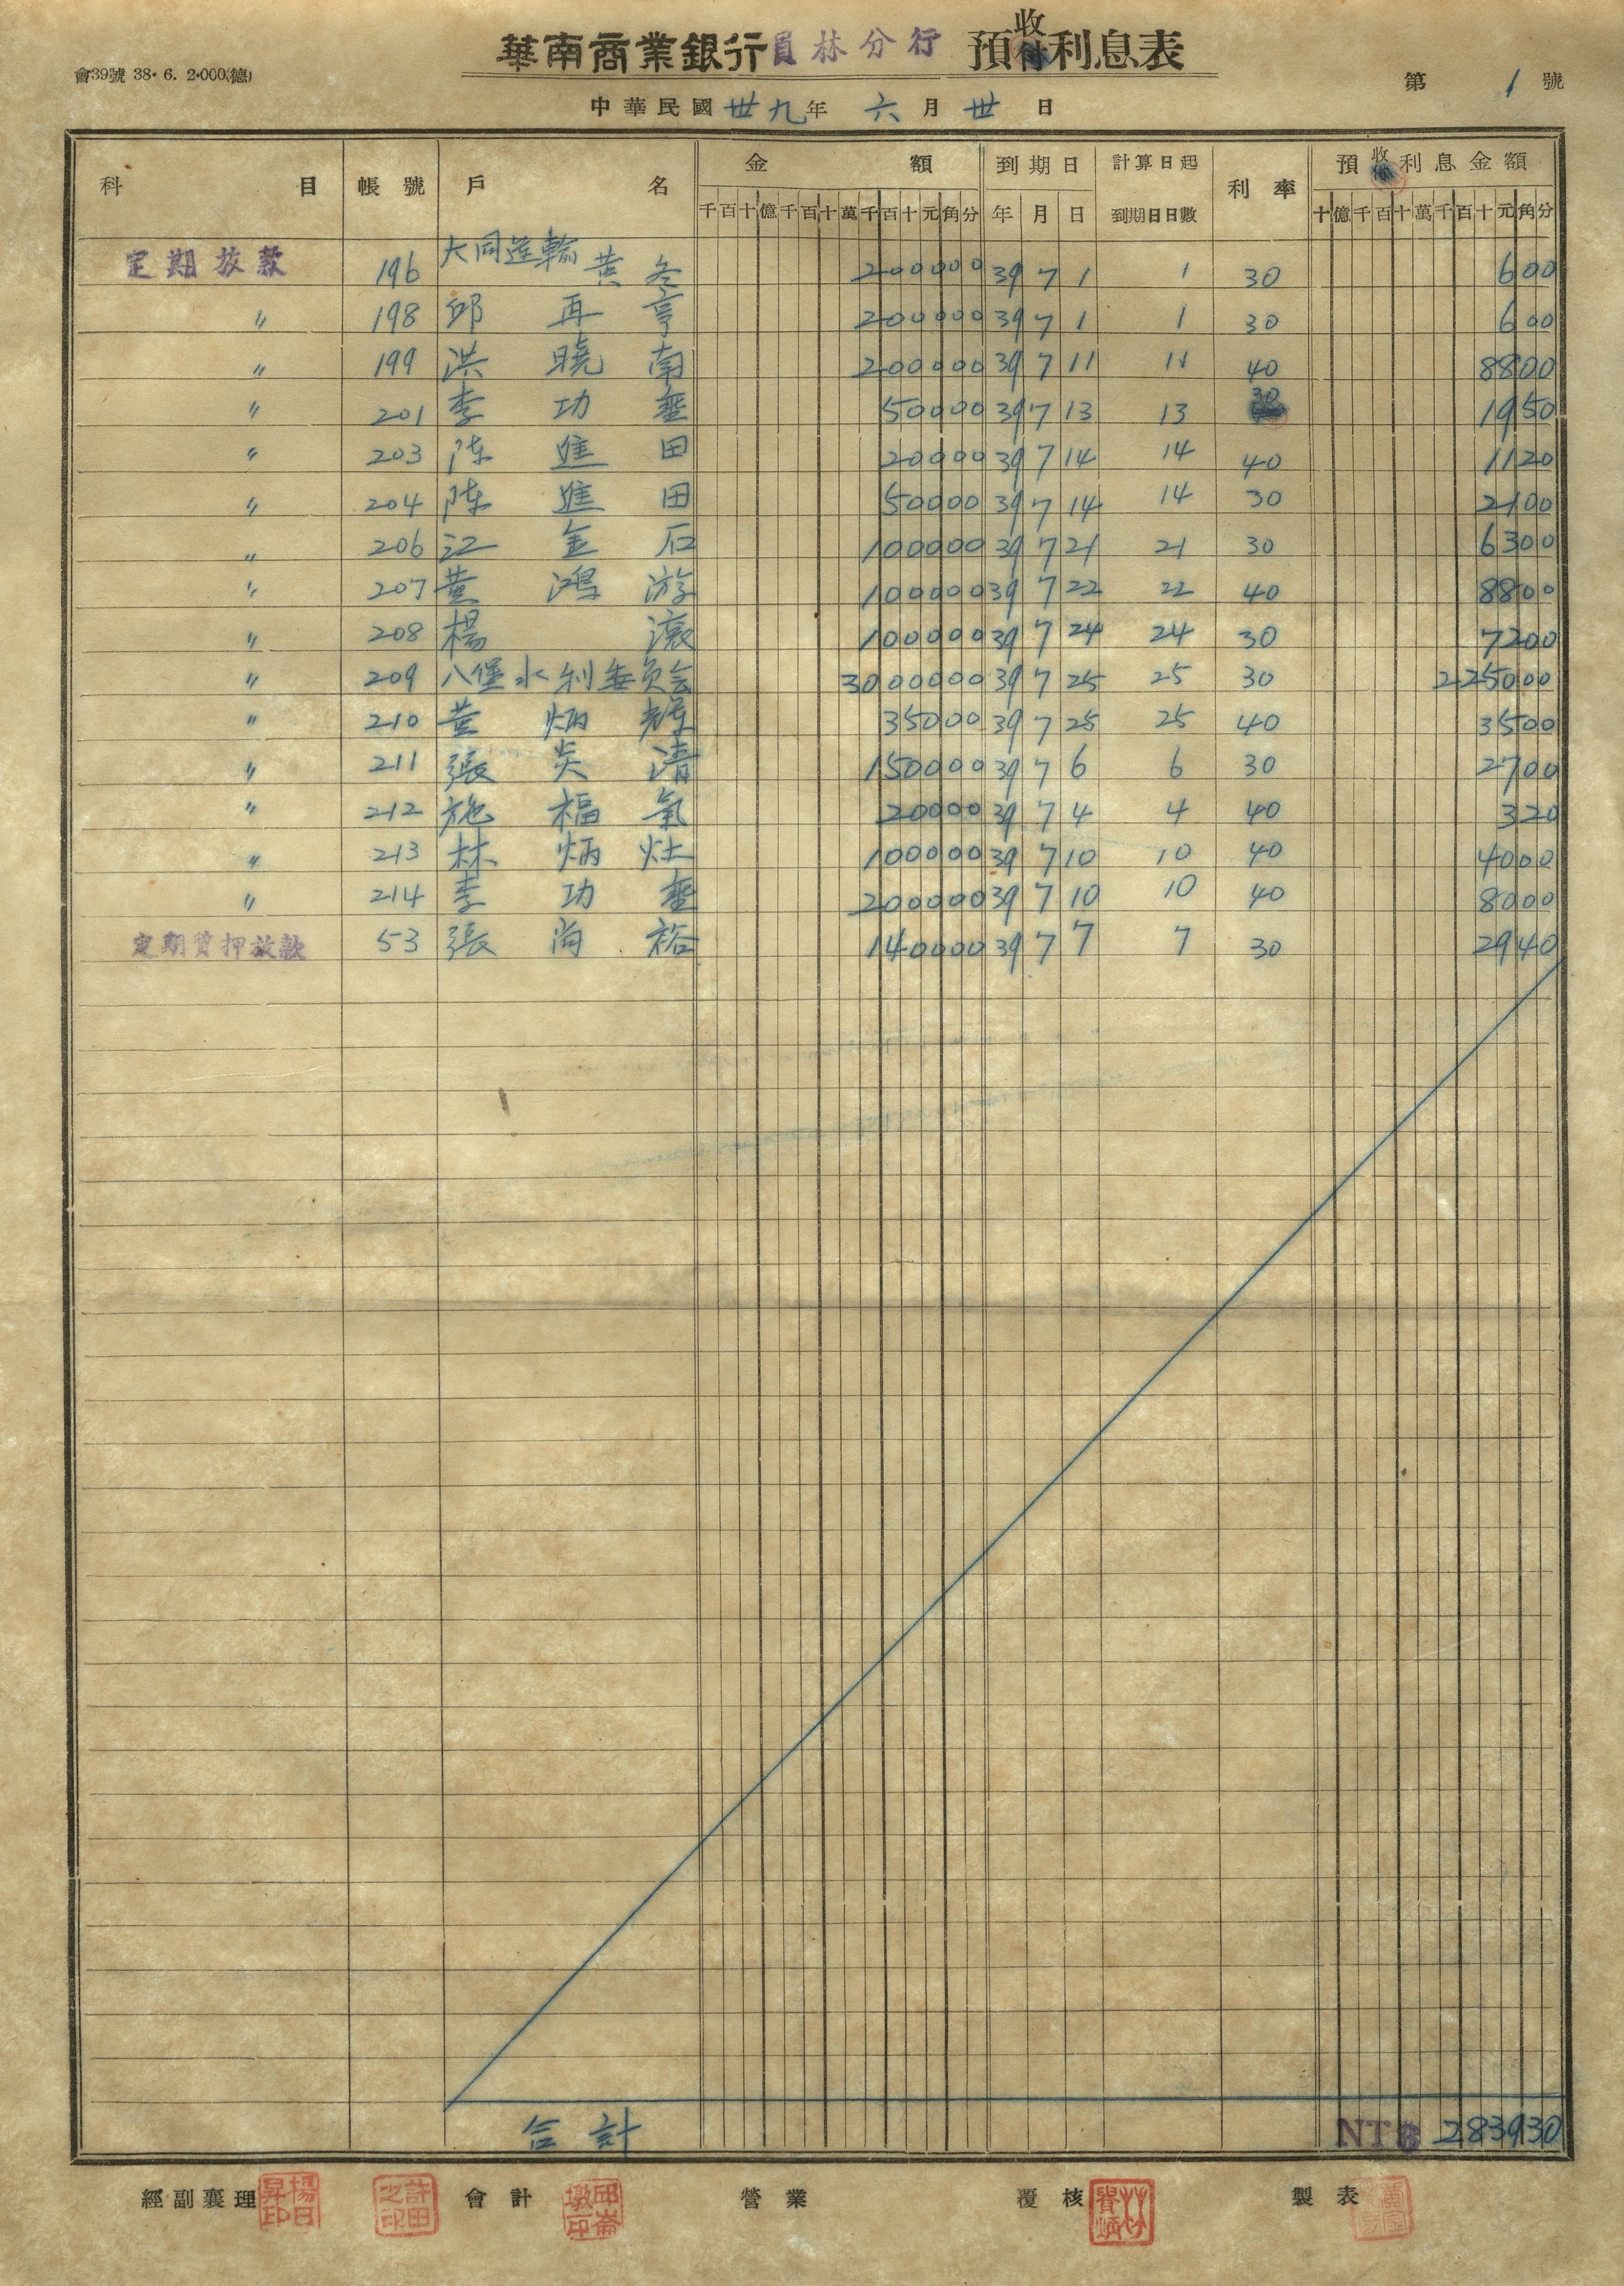 華南商業銀行員林分行 預收利息表
會39號 38.6.2.000(德)
第 1 號
中華民國卅九年 六月卅日
科目 帳號 戶名 金額 到期日 計算日起 利率 預收利息金額
千百十億千百十萬千百十元角分 年 月 日 到期日日數 十億千百十萬千百十元角分
定期放款 196 大同運輸 黃冬 200000 39 7 1 1 30 600
〃 198 邱再亨 200000 39 7 1 1 30 600
〃 199 洪曉南 200000 39 7 11 11 40 8800
〃 201 李功垂 50000 39 7 13 13 30 1950
〃 203 陳進田 20000 39 7 14 14 40 1120
〃 204 陳進田 50000 39 7 14 14 30 2100
〃 206 江金石 100000 39 7 21 21 30 6300
〃 207 黃鴻游 100000 39 7 22 22 40 8800
〃 208 楊滾 100000 39 7 24 24 30 7200
〃 209 八堡水利委員会 3000000 39 7 25 25 30 225000
〃 210 黃炳輝 35000 39 7 25 25 40 3500
〃 211 張炎清 150000 39 7 6 6 30 2700
〃 212 施福氣 20000 39 7 4 4 40 320
〃 213 林炳灶 100000 39 7 10 10 40 4000
〃 214 李功垂 200000 39 7 10 10 40 8000
定期質押放款 53 張尚裕 140000 39 7 7 7 30 2940
合計 NT$ 283930
經副襄理 楊日昇印 許田之印 會計 營業 覆核 製表